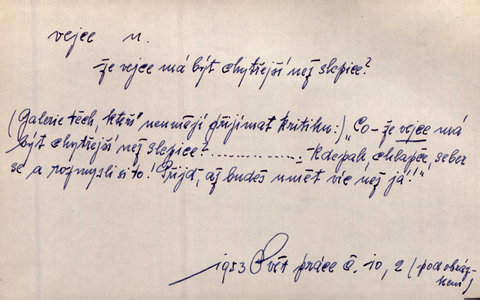 vejce n.
že vejce má být chytřejší než slepice?
(Galerie těch, kteří neumějí přijímat kritiku:) „Co – že vejce má
být chytřejší než slepice? ................ : Kdepak chlapče, seber
se a rozmysli si to! Přijď, až budeš umět víc než já!"
1953 Svět práce č. 10, 2 (pod obráz-
kem)